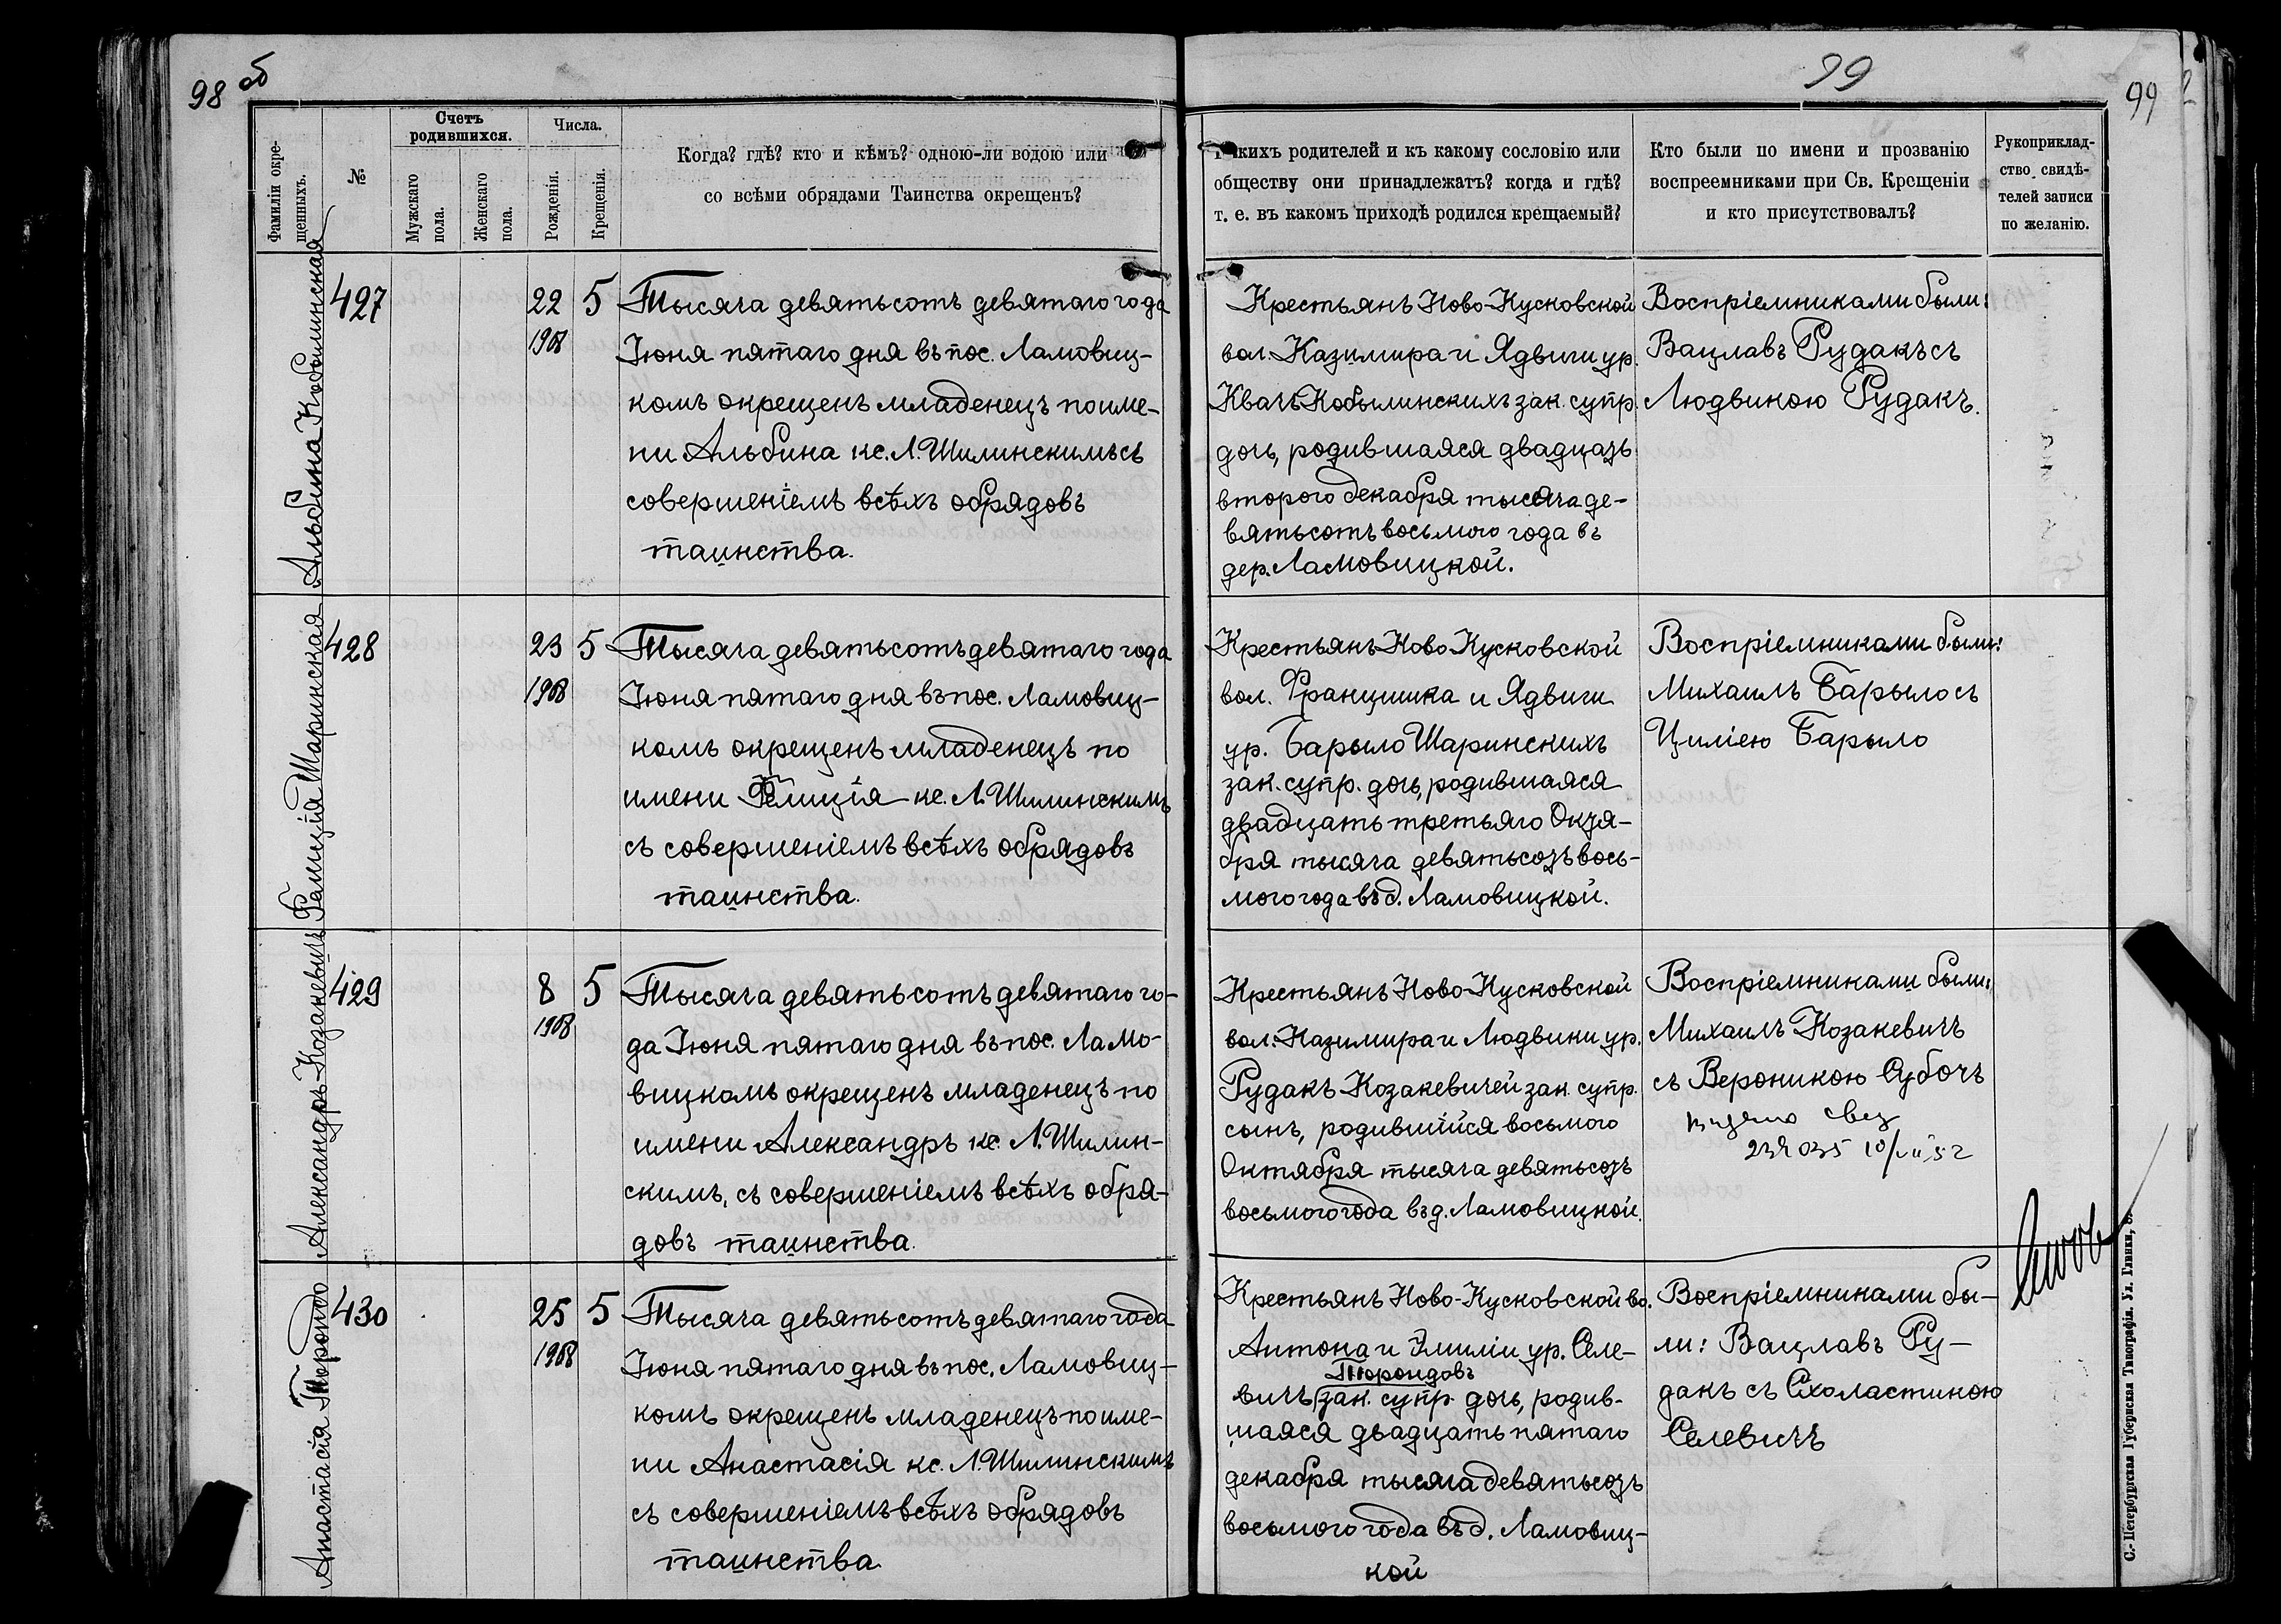 98 об
99
99
Фамиліи окре-
щенныхъ.
№
Счетъ
родившихся.
Мужскаго
пола.
Женскаго
пола.
Числа.
Рожденія.
Крещенія.
Когда? гдѣ? кто и кѣмъ? одною-ли водою или
со всѣми обрядами Таинства окрещенъ?
какихъ родителей и къ какому сословію или
обществу они принадлежатъ? когда и гдѣ?
т. е. въ какомъ приходѣ родился крещаемый?
Кто были по имени и прозванію
воспреемниками при Св. Крещеніи
и кто присутствовалъ?
Рукоприклад-
ство свидѣ-
телей записи
по желанію.
Альбина Кобылинская
427
22
1908
5
Тысяча девятьсотъ девятаго года
Іюня пятаго дня въ пос. Ламовиц-
комъ окрещенъ младенецъ по име-
ни Альбина кс. Л. Шилинскимъ съ
совершеніемъ всѣхъ обрядовъ
таинства.
Крестьянъ Ново-Кусковской
вол. Казимира и Ядвиги ур.
Квачъ Кобылинскихъ зак. супр.
дочь, родившаяся двадцать
второго декабря тысяча де-
вятьсотъ восьмого года въ
дер. Ламовицкой.
Воспріемниками были:
Вацлавъ Рудакъ съ
Людвикою Рудакъ.
Фелиція Шаринская
428
23
1908
5
Тысяча девятьсотъ девятаго года
Іюня пятаго дня въ пос. Ламовиц-
комъ окрещенъ младенецъ по
имени Фелиція кс. Л. Шилинскимъ
съ совершеніемъ всѣхъ обрядовъ
таинства.
Крестьянъ Ново Кусковской
вол. Францишка и Ядвиги
ур. Барыло Шаринскихъ
зак. супр. дочь, родившаяся
двадцать третьяго Октя-
бря тысяча девятьсотъ вось-
мого года въ д. Ламовицкой.
Воспріемниками были:
Михаилъ Барыло съ
Циліею Барыло
Александръ Козакевичъ
429
8
1908
5
Тысяча девятьсотъ девятаго го-
да Іюня пятаго дня въ пос. Ламо-
вицкомъ окрещенъ младенецъ по
имени Александръ кс. Л. Шилин-
скимъ, съ совершеніемъ всѣхъ обря-
довъ таинства.
Крестьянъ Ново-Кусковской
вол. Казимира и Людвики ур.
Рудакъ Козакевичей зак. супр.
сынъ, родившійся восьмого
Октября тысяча девятьсотъ
восьмого года въ д. Ламовицкой.
Воспріемниками были:
Михаилъ Козакевичъ
съ Вероникою Субочъ
Анастасія Торондо
430
25
1908
5
Тысяча девятьсотъ девятаго года
Іюня пятаго дня въ пос. Ламовиц-
комъ окрещенъ младенецъ по име-
ни Анастасія кс. Л. Шилинскимъ
съ совершеніемъ всѣхъ обрядовъ
таинства.
Крестьянъ Ново-Кусковской во.
Антона и Эмиліи ур. Селе-
Торондовъ
вичъ зак. супр. дочь, родив-
шаяся двадцать пятаго
декабря тысяча девятьсотъ
восьмого года въ д. Ламовиц-
кой
Воспріемниками бы-
ли: Вацлавъ Ру-
дакъ съ Схоластикою
Селевичъ